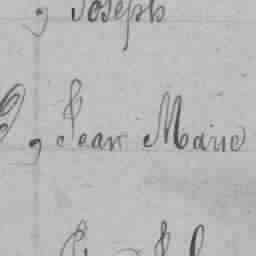 , Joseph
, Jean Marie